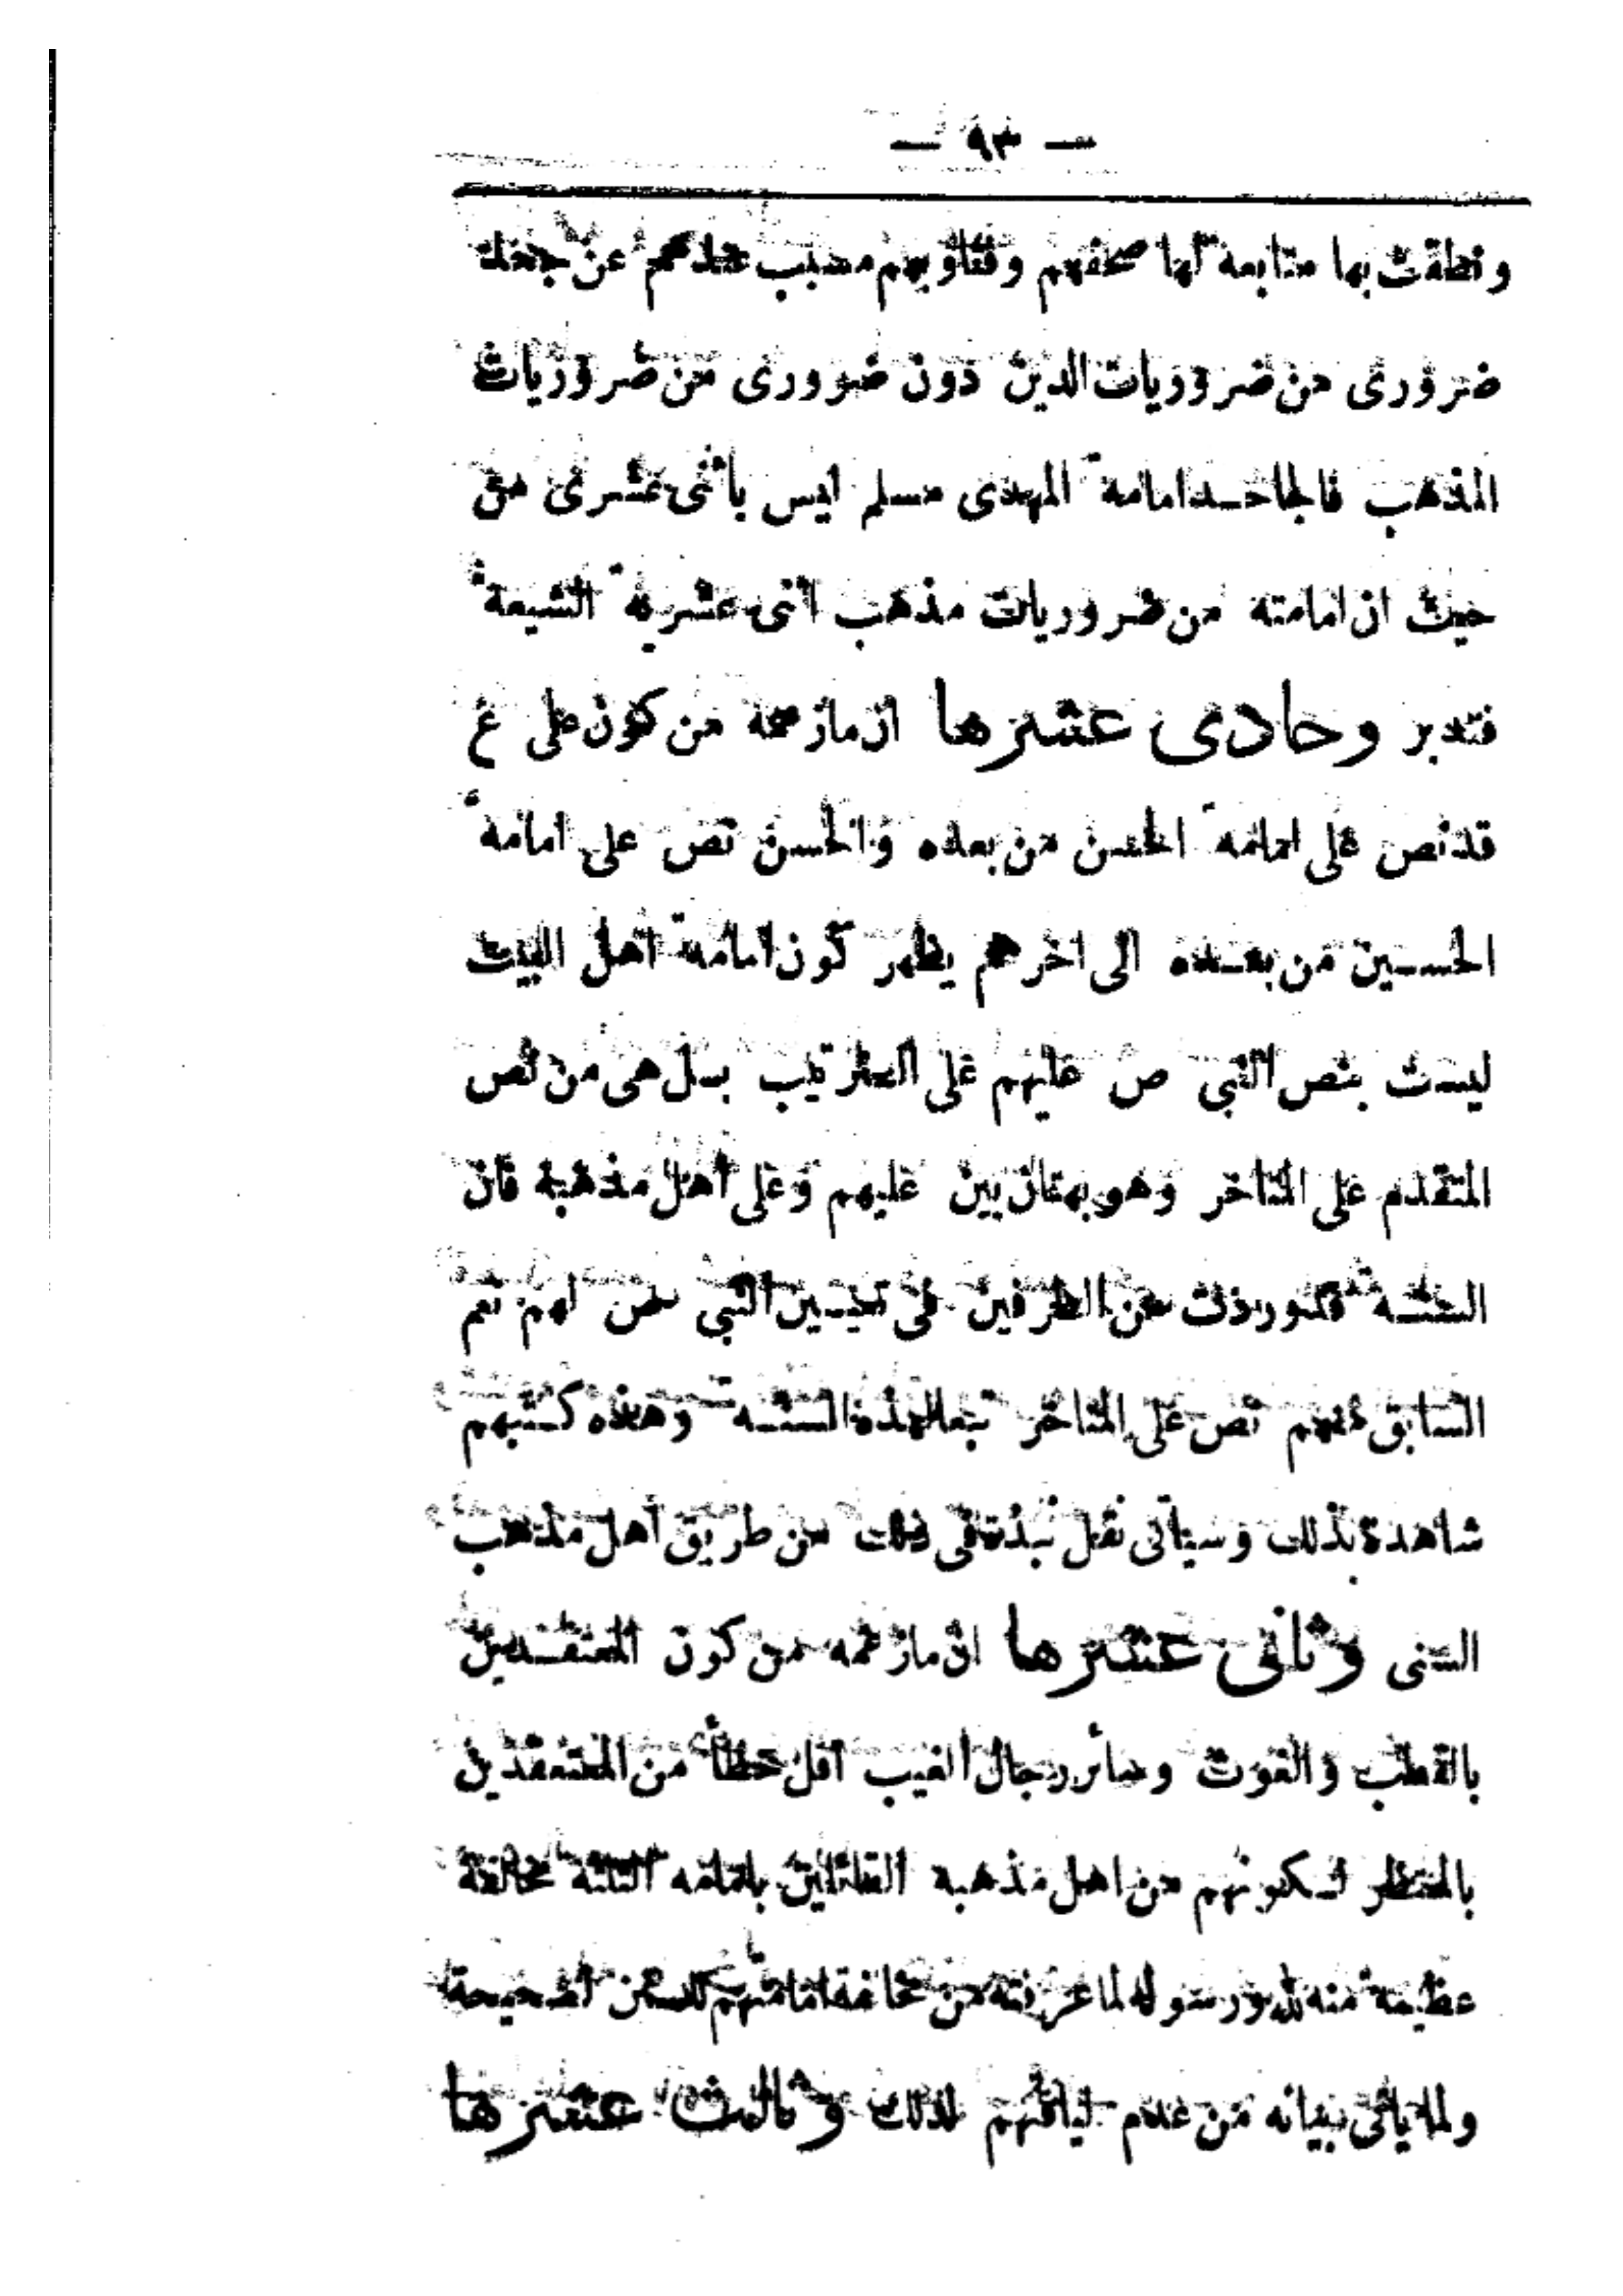 — ٩٣ —
ونطقت بها متابعة لها صحفهم وفتاويهم عن جحد
ضرورى من ضروريات الدين دون ضرورى من ضروريات
المذهب فالجاحد امامة المهدى مسلم ليس باثنى عشرى من
حيث ان امامته من ضروريات مذهب اثنى عشرية الشيعة
فتدبر وحادى عشرها ان مازعمه من كون على ع
قد نص على امامة الحسن من بعده والحسن نص على امامة
الحسين من بعده الى اخرهم يظهر كون امامة اهل البيت
ليست بنص النبى ص عليهم على الترتيب بل هى من نص
المتقدم على المتاخر وهو بهتان بين عليهم وعلى اهل مذهبه فان
السنة قد وردت من الطرفين فى تعيين النبى ص لهم نعم
السابق منهم نص على المتاخر تبعا لهذه السنة وهذه كتبهم
شاهدة بذلك وسياتى نقل نبذة فى ذلك من طريق أهل مذهب
السنى وثانى عشرها ان مازعمه من كون المعتقدين
بالقطب والغوث وسائر رجال الغيب اقل خطأ من المعتقدين
بالمنتظر لكونهم من اهل مذهبه القائلين بامامه الثلثة مخالفة
عظيمة منه لله ورسوله لما عرفته من مخالفة امامتهم للسنن الصحيحة
ولما ياتى بيانه من عدم لياقتهم لذلك وثالث عشرها